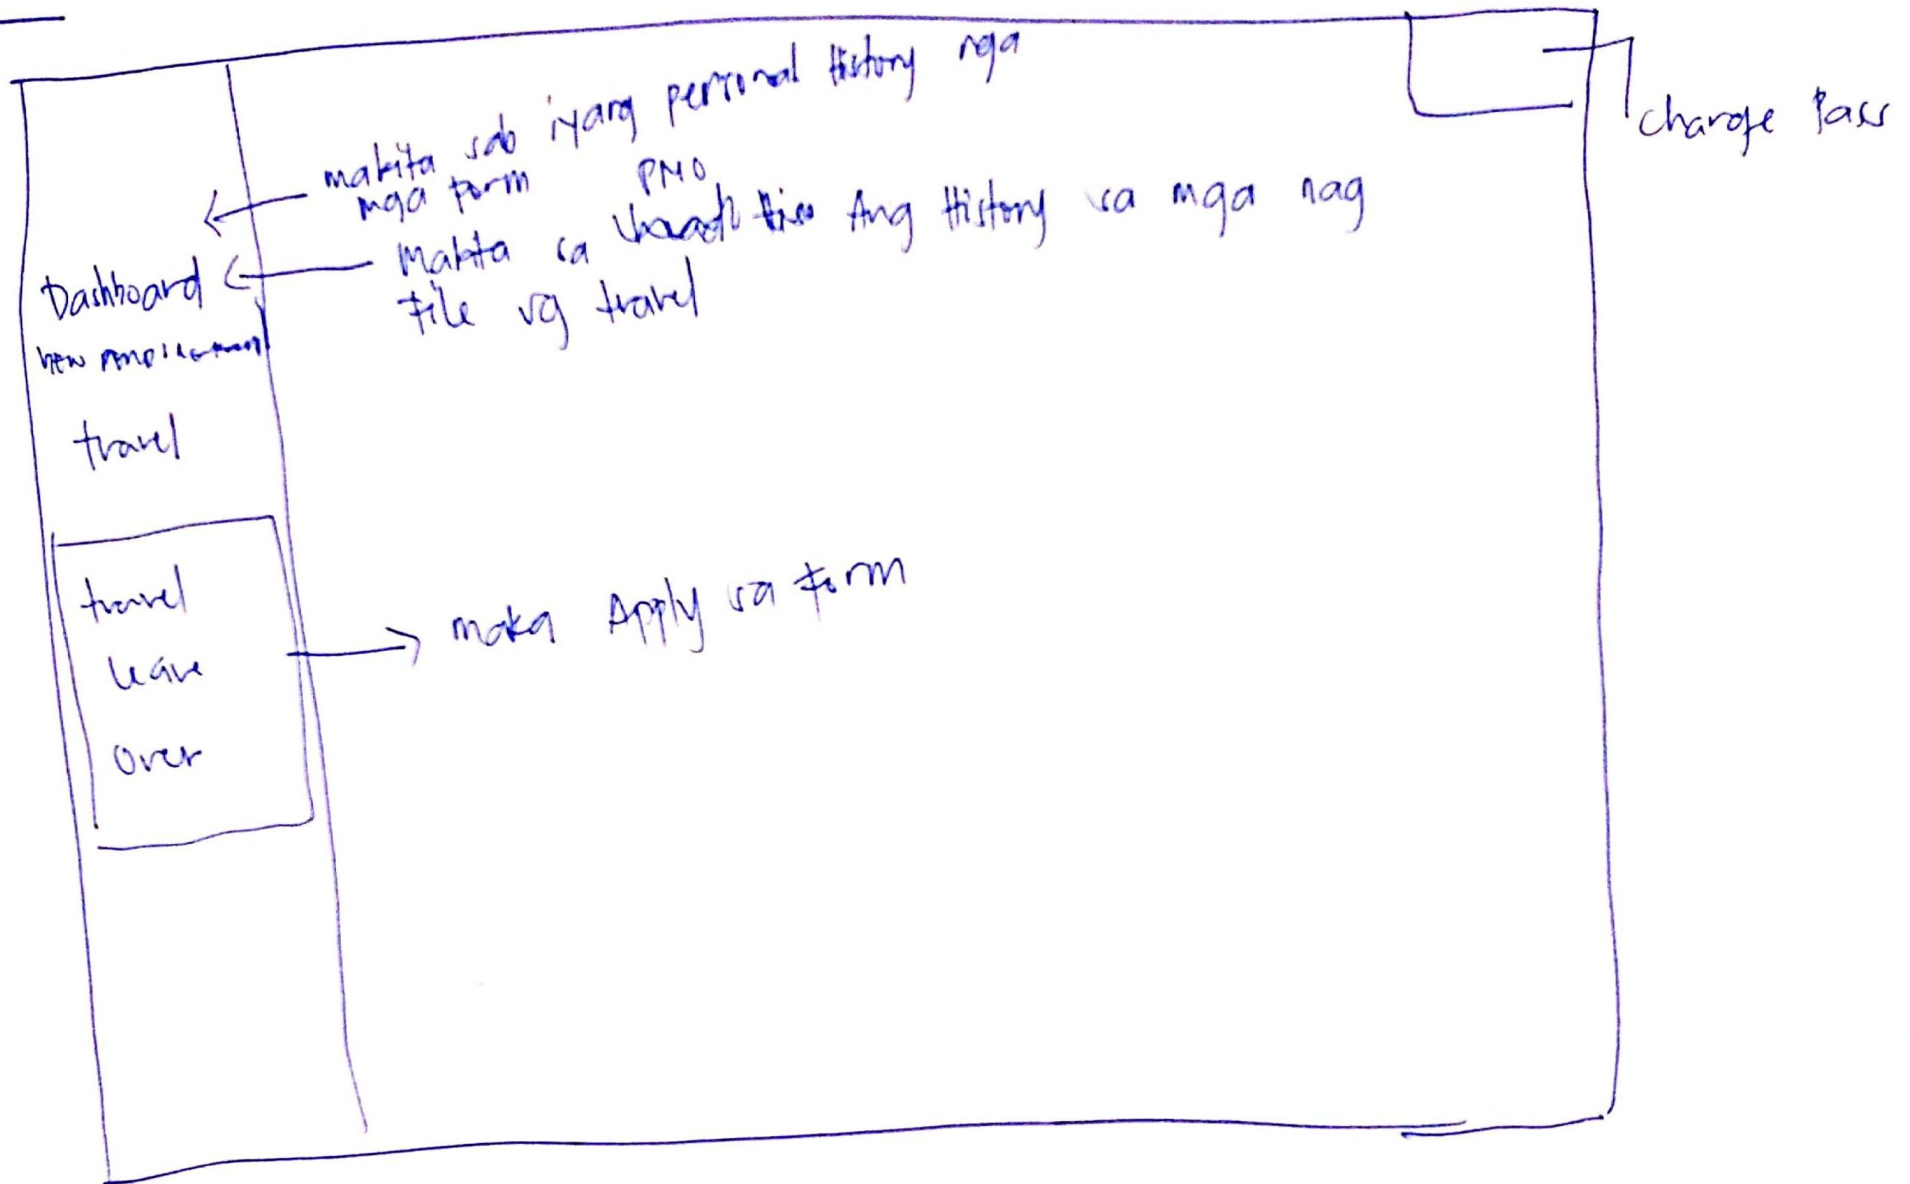 makita sab iyang personal History nga
mga form
PMO
Makita sa Ang History sa mga nag
File ug travel
change Pass
Dashboard
New
travel
travel
leave
over
maka Apply sa Form